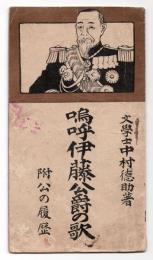 文學士中村德助著
嗚呼伊藤公爵の歌
附公の履歷